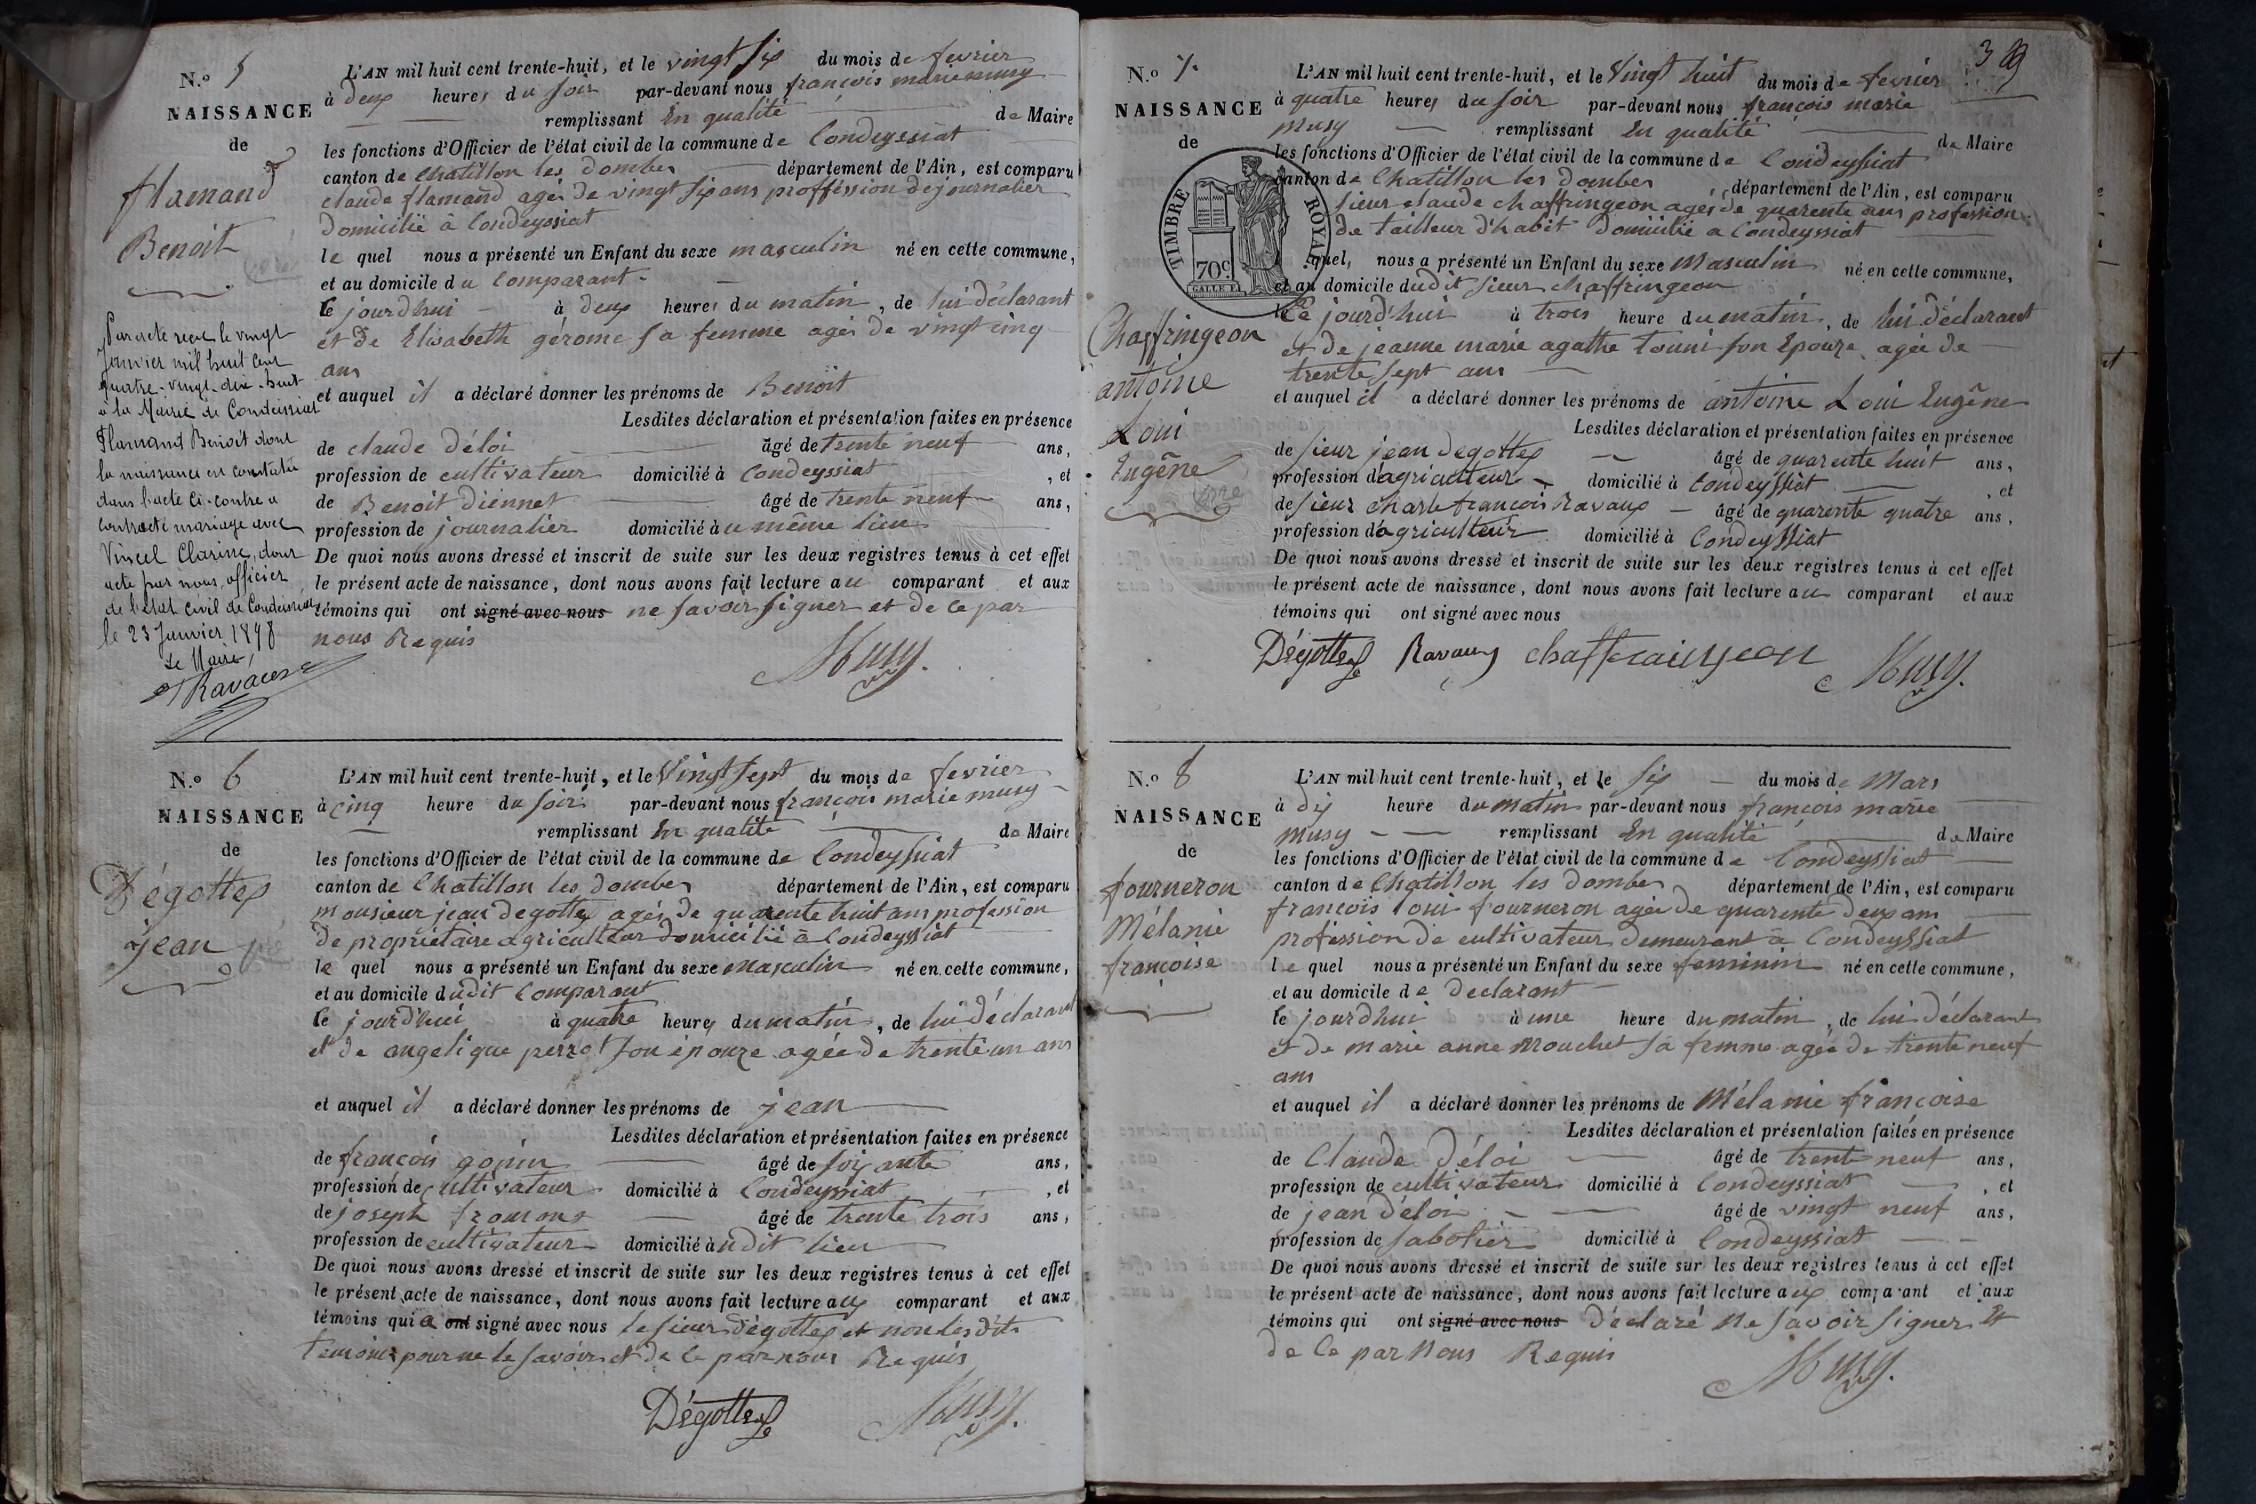 N.º 5
NAISSANCE
de
flamand
Benoit
Par acte reçu le vingt
Janvier mil huit cent
quatre-vingt-dix-huit
à la Mairie de Condeissiat
Flamand Benoit dont
la naissance est constatée
dans l'acte ci-contre a
contracté mariage avec
Clarine, dont
acte par nous, officier
de l'état civil de Condeissiat
le 23 Janvier 1898
Le Maire,
Ravaux
L'AN mil huit cent trente-huit, et le vingt six du mois de fevrier
à deux heures du soir par-devant nous françois marie musy
remplissant En qualité de Maire
les fonctions d'Officier de l'état civil de la commune de Condeyssiat
canton de chatillon les dombes département de l'Ain, est comparu
claude flamand agés de vingt six ans proffession de journalier
domicilié à Condeyssiat
le quel nous a présenté un Enfant du sexe masculin né en cette commune,
et au domicile du Comparant
le jourd'hui à deux heures du matin, de lui déclarant
et de Elisabeth gérome sa femme agés de vingt cinq
ans
et auquel il a déclaré donner les prénoms de Benoit
Lesdites déclaration et présentation faites en présence
de claude déloi âgé de trente neuf ans,
profession de cultivateur domicilié à Condeyssiat, et
de Benoit diennet âgé de trente neuf ans,
profession de journalier domicilié au même lieu
De quoi nous avons dressé et inscrit de suite sur les deux registres tenus à cet effet
le présent acte de naissance, dont nous avons fait lecture au comparant et aux
témoins qui ont signé avec nous ne savoir signer et de ce par
nous Requis
Musy.
N.º 6
NAISSANCE
de
Dégottex
jean
L'AN mil huit cent trente-huit, et le Vingt sept du mois de fevrier
à cinq heure du soir par-devant nous françois marie musy
remplissant En qualité de Maire
les fonctions d'Officier de l'état civil de la commune de Condeyssiat
canton de Chatillon les dombes département de l'Ain, est comparu
monsieur jean degottex agés de quarente huit ans profession
de propriétaire agriculteur domicilié à Condeyssiat
le quel nous a présenté un Enfant du sexe Masculin né en cette commune,
et au domicile dudit Comparant
le jourd'hui à quatre heures du matin, de lui déclarant
et de angelique perrot son épouze agée de trente un ans
et auquel il a déclaré donner les prénoms de jean
Lesdites déclaration et présentation faites en présence
de françois gonin âgé de soixante ans,
profession de cultivateur domicilié à Condeyssiat, et
de joseph fromont âgé de trente trois ans,
profession de cultivateur domicilié audit lieu
De quoi nous avons dressé et inscrit de suite sur les deux registres tenus à cet effet
le présent acte de naissance, dont nous avons fait lecture aux comparant et aux
témoins qui a ont signé avec nous le sieur dégottex et non lesdits
temoins pour ne le savoir et de ce par nous Requis
Dégottex Musy.
39
N.º 7.
NAISSANCE
de
TIMBRE ROYAL
70 C.
Chaffringeon
antoine
Loui
Eugêne
L'AN mil huit cent trente-huit, et le Vingt huit du mois de fevrier
à quatre heures du soir par-devant nous françois marie
musy remplissant En qualité de Maire
les fonctions d'Officier de l'état civil de la commune de Condeyssiat
canton de Chatillon les dombes, département de l'Ain, est comparu
sieur claude chaffringeon agés de quarente ans profession
de tailleur d'habit domicilié a Condeyssiat
quel, nous a présenté un Enfant du sexe Masculin né en cette commune,
et au domicile dudit sieur chaffringeon
le Ce jourd'hui à trois heure du matin, de lui déclarant
et de jeanne marie agathe touni son Epouze agée de
trente sept ans
et auquel il a déclaré donner les prénoms de antoine Loui Eugêne
Lesdites déclaration et présentation faites en présence
de sieur jean degottex âgé de quarente huit ans,
profession d'agriculteur domicilié à Condeyssiat, et
de sieur charle françois Ravaux âgé de quarente quatre ans,
profession d'agriculteur domicilié à Condeyssiat
De quoi nous avons dressé et inscrit de suite sur les deux registres tenus à cet effet
le présent acte de naissance, dont nous avons fait lecture au comparant et aux
témoins qui ont signé avec nous
Dégottex Ravaux chaffraingeon Musy.
N.º 8
NAISSANCE
de
fourneron
Mélanie
françoise
L'AN mil huit cent trente-huit, et le six du mois de Mars
à dix heure du matin par-devant nous françois marie
musy remplissant En qualité de Maire
les fonctions d'Officier de l'état civil de la commune de Condeyssiat
canton de Chatillon les dombes département de l'Ain, est comparu
françois loui fourneron agée de quarente deux ans
profession de cultivateur demeurant à Condeyssiat
le quel nous a présenté un Enfant du sexe feminin né en cette commune,
et au domicile de declarant
le jourd'hui à une heure du matin, de lui déclarant
et de marie anne Mouchet sa femme agée de trente neuf
ans
et auquel il a déclaré donner les prénoms de Mélanie françoise
Lesdites déclaration et présentation faites en présence
de Claude Déloi âgé de trente neuf ans,
profession de cultivateur domicilié à Condeyssiat, et
de jean déloi âgé de vingt neuf ans,
profession de sabotier domicilié à Condeyssiat
De quoi nous avons dressé et inscrit de suite sur les deux registres tenus à cet effet
le présent acte de naissance, dont nous avons fait lecture aux comparant et aux
témoins qui ont signé avec nous déclaré Ne savoir signer Et
de Ce par Nous Requis
Musy.